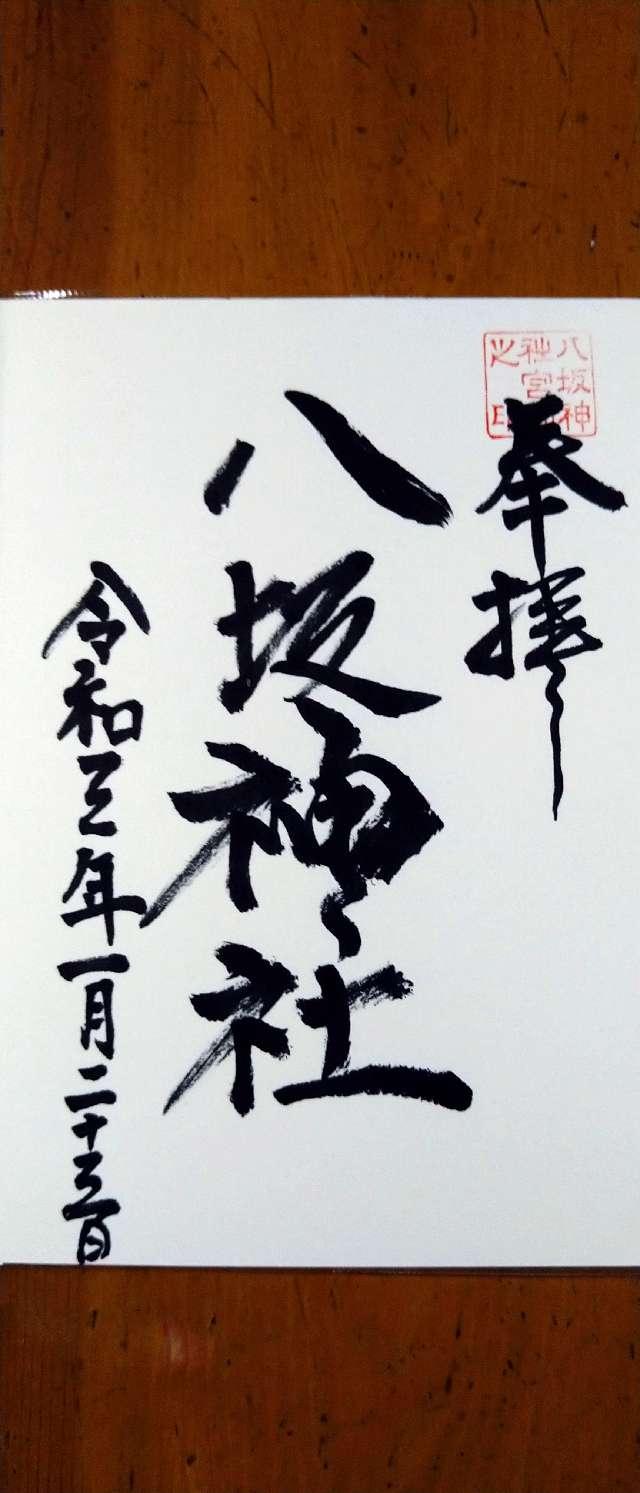 奉拝
八坂神社
令和三年一月二十三日
八坂神
社宮
之印